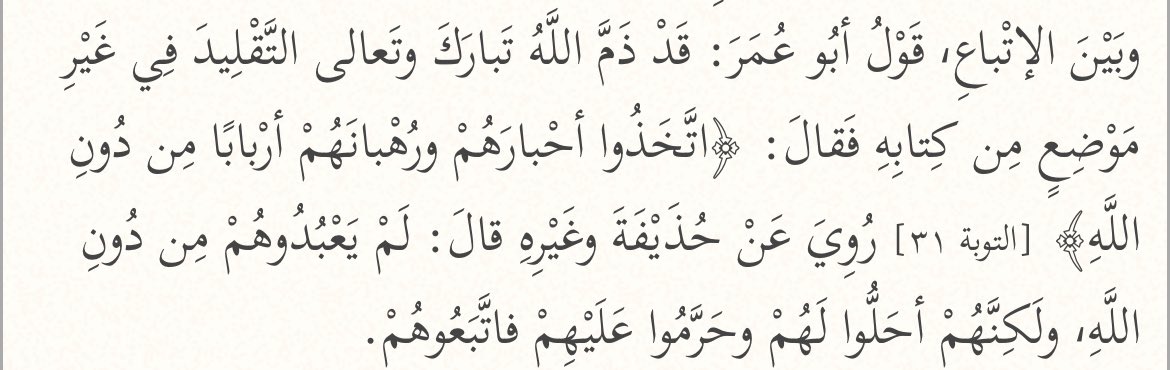 وبَيْنَ الإتْباعِ، قَوْلُ أبُو عُمَرَ: قَدْ ذَمَّ اللَّهُ تَبارَكَ وتَعالى التَّقْلِيدَ فِي غَيْرِ
مَوْضِعٍ مِن كِتابِهِ فَقالَ: ﴿اتَّخَذُوا أحْبارَهُمْ ورُهْبانَهُمْ أرْبابًا مِن دُونِ
اللَّهِ﴾ [التوبة ٣١] رُوِيَ عَنْ حُذَيْفَةَ وغَيْرِهِ قالَ: لَمْ يَعْبُدُوهُمْ مِن دُونِ
اللَّهِ، ولَكِنَّهُمْ أحَلُّوا لَهُمْ وحَرَّمُوا عَلَيْهِمْ فاتَّبَعُوهُمْ.